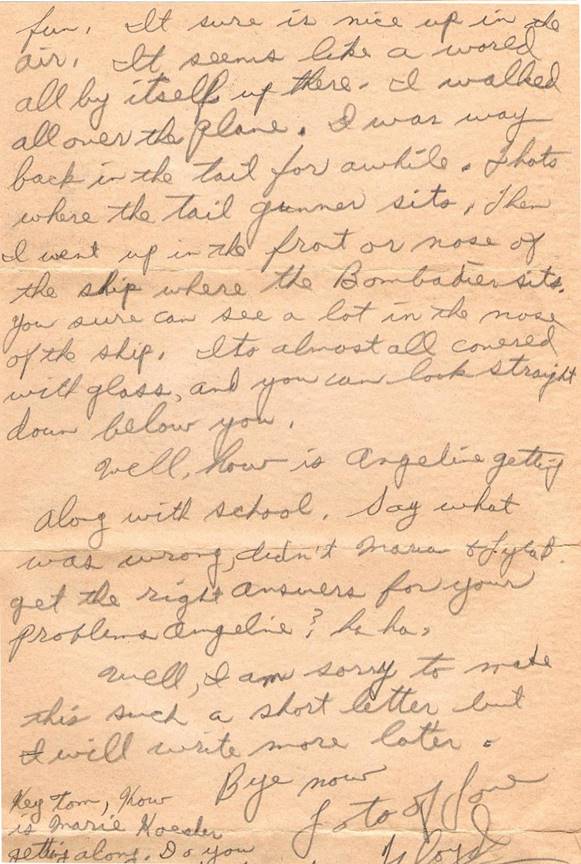 fun. It sure is nice up in the
air. It seems like a world
all by itself up there. I walked
all over the plane. I was way
back in the tail for awhile. Thats
where the tail gunner sits. Then
I went up in the front or nose of
the ship where the Bombadier sits.
You sure can see a lot in the nose
of the ship. Its almost all covered
with glass, and you can look straight
down below you.
Well, how is Angeline getting
along with school. Say what
was wrong, didn't Maria &
get the right answers for your
problems Angeline? ha ha.
Well, I am sorry to make
this such a short letter but
I will write more later.
Bye now
Lots of Love
Lloyd
Hey Tom, How
is Marie Koesler
getting along. Do you